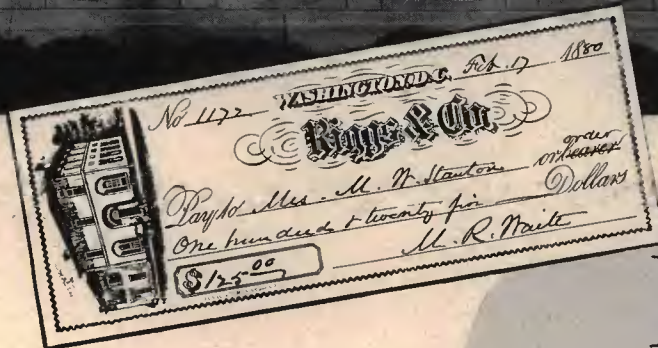 No 1172 WASHINGTON, D.C. Feb. 17 1880
Riggs & Co
order
Pay to Mrs. M. W. Stanton or bearer
One hundred & twenty five Dollars
$125.00
M. R. Waite